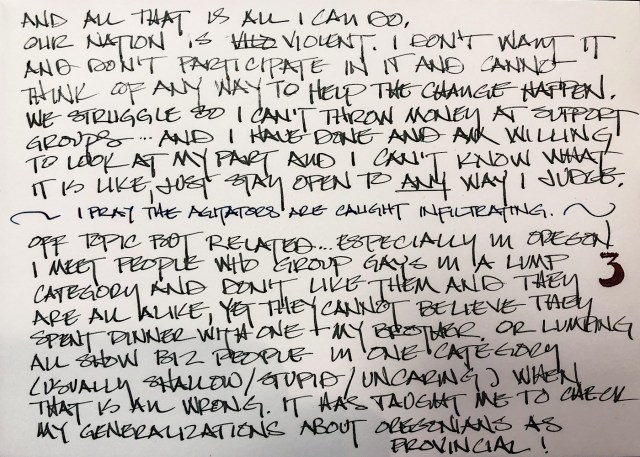 AND ALL THAT IS ALL I CAN DO.
OUR NATION IS VIOLENT. I DON'T WANT IT
AND DON'T PARTICIPATE IN IT AND CANNOT
THINK OF ANY WAY TO HELP THE CHANGE HAPPEN.
WE STRUGGLE SO I CAN'T THROW MONEY AT SUPPORT
GROUPS... AND I HAVE DONE AND AM WILLING
TO LOOK AT MY PART AND I CAN'T KNOW WHAT
IT IS LIKE, JUST STAY OPEN TO ANY WAY I JUDGE.
~ I PRAY THE AGITATORS ARE CAUGHT INFILTRATING. ~
OFF TOPIC BUT RELATED... ESPECIALLY IN OREGON
I MEET PEOPLE WHO GROUP GAYS IN A LUMP
3
CATEGORY AND DON'T LIKE THEM AND THEY
ARE ALL ALIKE, YET THEY CANNOT BELIEVE THEY
SPENT DINNER WITH ONE - MY BROTHER. OR LUMPING
ALL SHOW BIZ PEOPLE IN ONE CATEGORY
(USUALLY SHALLOW/STUPID/UNCARING) WHEN
THAT IS ALL WRONG. IT HAS TAUGHT ME TO CHECK
MY GENERALIZATIONS ABOUT OREGONIANS AS
PROVINCIAL!